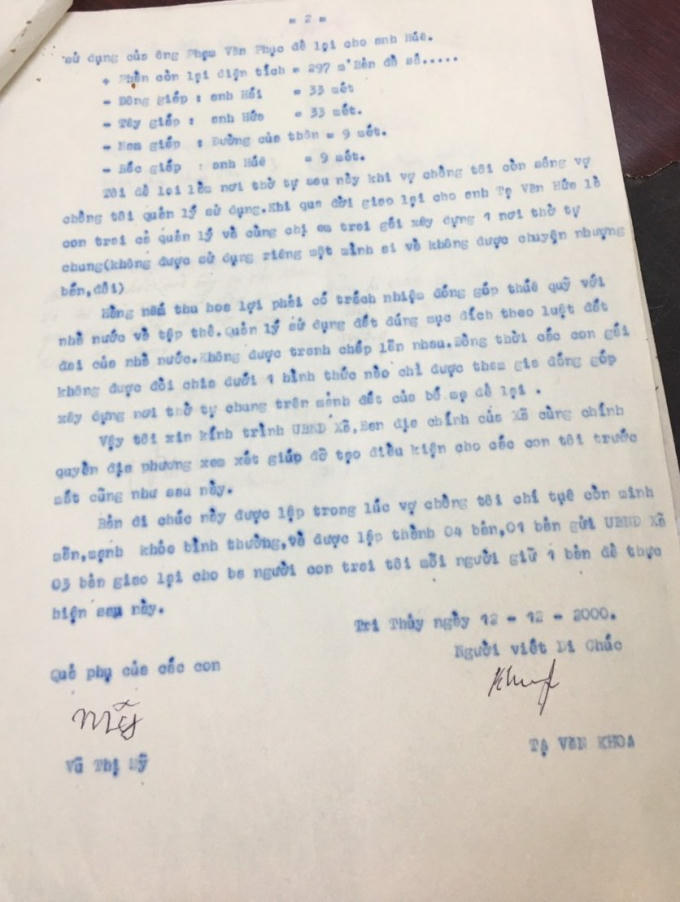 = 2 =
sử dụng của ông Phạm Văn Phục để lại cho anh Húe.
+ Phần còn lại diện tích = 297 m² Bản đồ số.....
- Đông giáp : anh Hải = 33 mét
- Tây giáp : anh Hức = 33 mét.
- Nam giáp : Đường của thôn = 9 mét.
- Bắc giáp : anh Húe = 9 mét.
Tôi để lại làm nơi thờ tự sau này khi vợ chồng tôi còn sống vợ
chồng tôi quản lý sử dụng.Khi qua đời giao lại cho anh Tạ Văn Hức là
con trai cả quản lý và cùng chị em trai gái xây dựng 1 nơi thờ tự
chung(không được sử dụng riêng một mình ai và không được chuyện nhượng
bán,đổi)
Hàng năm thu hoa lợi phải có trách nhiệm đóng góp thuế quỹ với
nhà nước và tập thể.Quản lý sử dụng đất đúng mục đích theo luật đất
đai của nhà nước.Không được tranh chấp lẫn nhau.Đồng thời các con gái
không được đòi chia dưới 1 hình thức nào chỉ được tham gia đóng góp
xây dựng nơi thờ tự chung trên mảnh đất của bố mẹ để lại .
Vậy tôi xin kính trình UBND Xã,Ban địa chính của Xã cùng chính
quyền địa phương xem xét giúp đỡ tạo điều kiện cho các con tôi trước
mắt cũng như sau này.
Bản di chúc này được lập trong lúc vợ chồng tôi chí tuệ còn minh
mẫn,mạnh khỏe bình thường,và được lập thành 04 bản,01 bản gửi UBND Xã
03 bản giao lại cho ba người con trai tôi mỗi người giữ 1 bản để thực
hiện sau này.
Tri Thủy ngày 12 - 12 - 2000.
Quả phụ của các con
Người viết Di Chúc
Vũ Thị Mỹ
TẠ VĂN KHOA